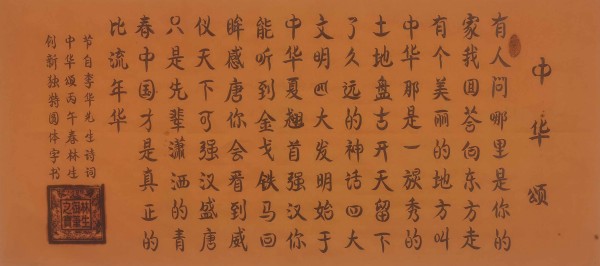 中华颂
有人问哪里是你的
家我回答向东方走
有个美丽的地方叫
中华那是一族秀的
土地盘古开天留下
了久远的神话四大
文明四大发明始于
中华夏翘首强汉你
能听到金戈铁马回
眸感唐你会看到威
仪天下可强汉盛唐
只是先辈潇洒的青
春中国才是真正的
比流年华
节自李华先生诗词
中华颂丙午春林生
创新独特圆体字书